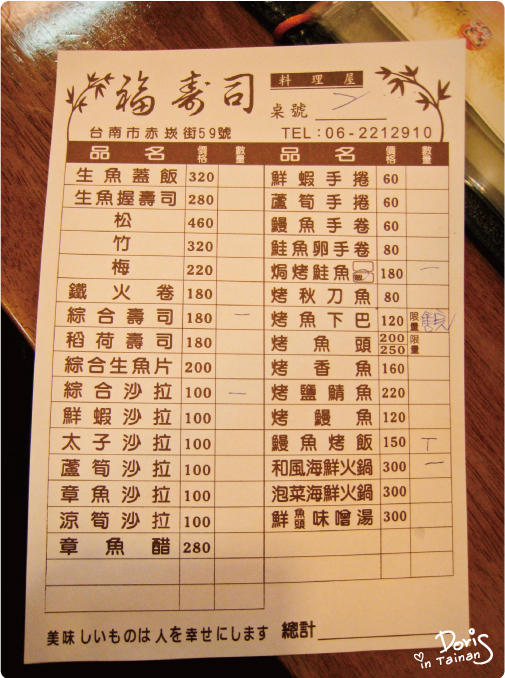 福壽司 料理屋
桌號
台南市赤崁街59號 TEL:06-2212910
品名 價格 數量 品名 價格 數量
生魚蓋飯 320 鮮蝦手捲 60
生魚握壽司 280 蘆筍手捲 60
松 460 鰻魚手卷 60
竹 320 鮭魚卵手卷 80
梅 220 焗烤鮭魚 180 一
鐵火卷 180 烤秋刀魚 80
綜合壽司 180 一 烤魚下巴 120 限量 售完
稻荷壽司 180 烤魚頭 200 250 限量
綜合生魚片 200 烤香魚 160
綜合沙拉 100 一 烤鹽鯖魚 220
鮮蝦沙拉 100 烤鰻魚 120
太子沙拉 100 鰻魚烤飯 150 T
蘆筍沙拉 100 和風海鮮火鍋 300 一
章魚沙拉 100 泡菜海鮮火鍋 300
涼筍沙拉 100 鮮魚頭味噌湯 300
章魚醋 280
美味しいものは人を幸せにします 總計
Doris in Tainan